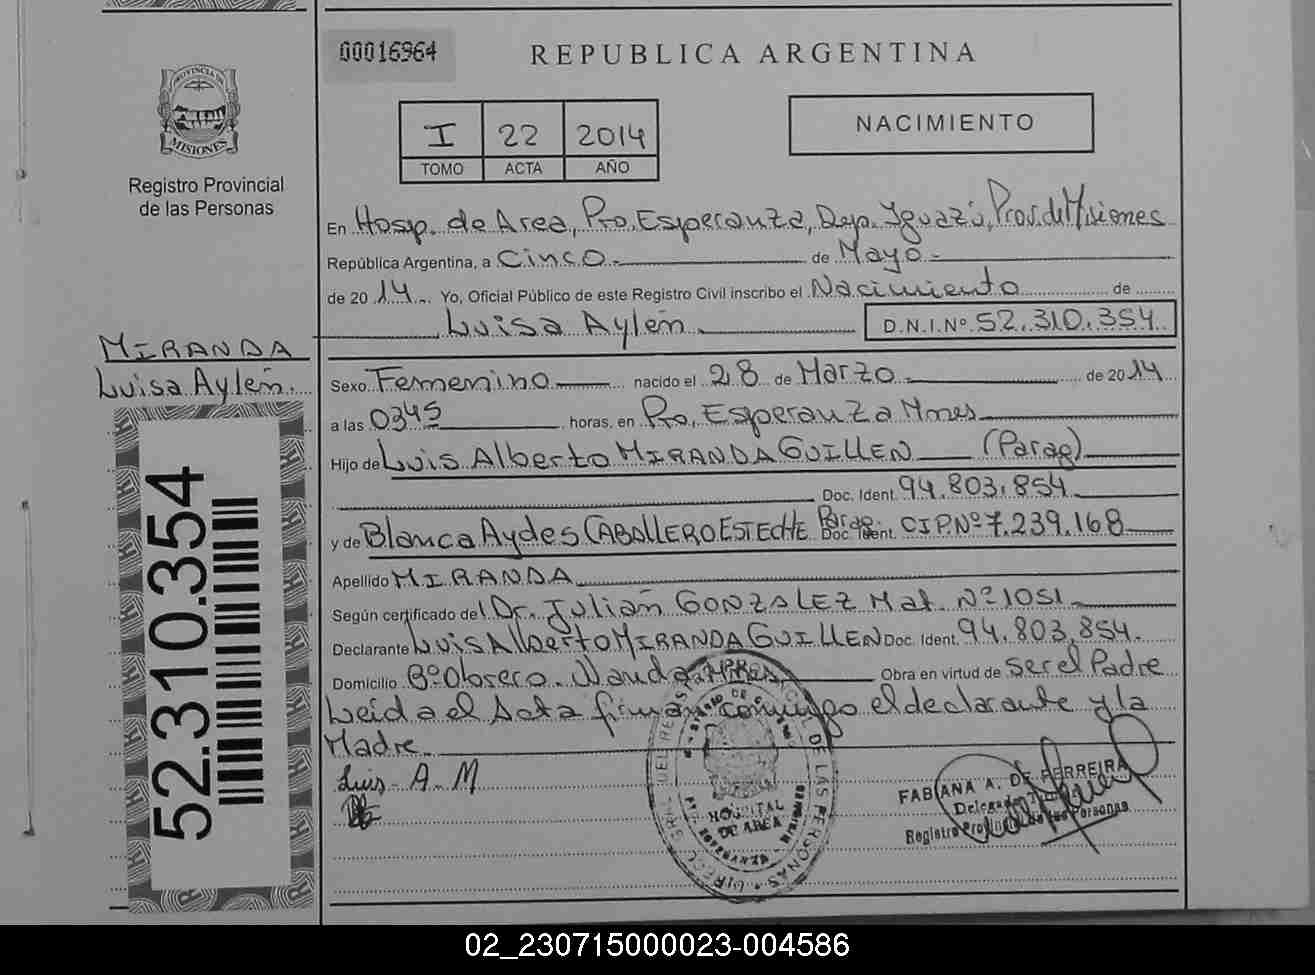 00016964
REPUBLICA ARGENTINA
PROVINCIA DE
MISIONES
Registro Provincial
de las Personas
I 22 2014
TOMO ACTA AÑO
NACIMIENTO
En Hosp. de Area, Pto. Esperanza, Dep. Iguazú, Prov. de Misiones
República Argentina, a Cinco de Mayo
de 2014 Yo, Oficial Público de este Registro Civil inscribo el Nacimiento de
Luisa Aylén D.N.I.Nº 52.310.354
MIRANDA
Luisa Aylén.
Sexo Femenino nacido el 28 de Marzo de 2014
a las 0345 horas, en Pto. Esperanza Mnes
Hijo de Luis Alberto MIRANDA GUILLEN (Parag)
Doc. Ident. 94.803.854
y de Blanca Aydes CABALLERO ESTECHE Parag. Doc. Ident. C.I.P.Nº 7.239.168
Apellido MIRANDA
Según certificado del Dr. Julián GONZALEZ Mat. Nº 1051
Declarante Luis Alberto MIRANDA GUILLEN Doc. Ident. 94.803.854.
Domicilio Bº Obrero. Wanda Mnes, Obra en virtud de ser el Padre
Leida el Acta firman conmigo el declarante y la
Madre.
Luis - A. M
52.310.354
HOSPITAL
DE AREA
DE LAS PERSONAS
FABIANA A. DE FERREIRA
Registro Provincial de las Personas
02_230715000023-004586